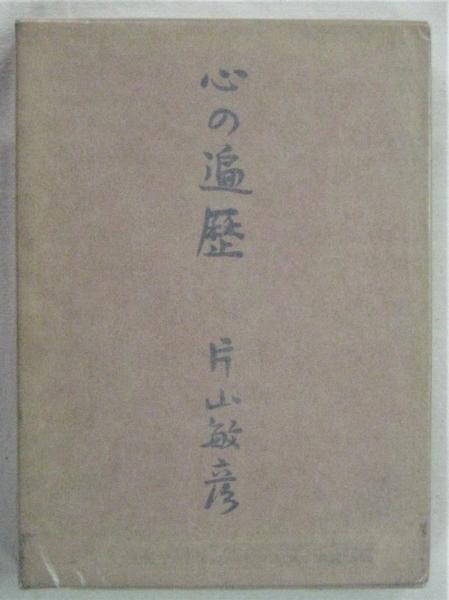 心の遍歴
片山敏彦